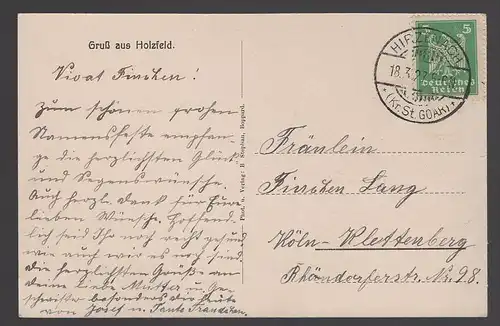 Gruß aus Holzfeld.
Vivat Finchen!
Zum schönen frohen
Namensfeste empfan-
ge die herzlichsten Glück-
und Segenswünsche.
Auch herzl. Dank für Eure
lieben Wünsche. Hoffend-
lich seid Ihr noch recht gesund
wie auch wir es noch sind
Die herzlichsten Grüße an
deine liebe Mutter u. Ge-
schwister besonders die Gute
von Josef u. Tante Fränzchen.
Phot. u. Verlag: B. Stephan, Boppard.
5 5
Deutsches
Reich
HIRZENACH
18.3.27
*(Kr. St. GOAR)*
Fräulein
Finchen Lang
Köln-Klettenberg
Rhöndorferstr. Nr. 98.